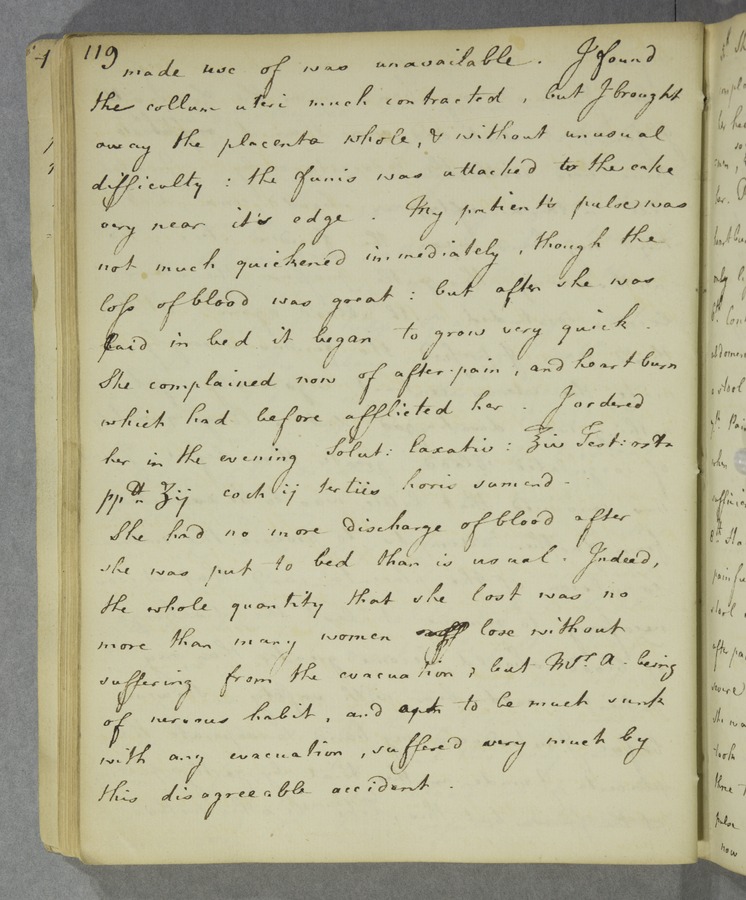 119
made use of was unavailable. I found
the collum uteri much contracted, but I brought
away the placenta whole, & without unusual
difficulty: the funis was attached to the cake
very near it's edge. My patient's pulse was
not much quickened immediately, though the
loss of blood was great: but after she was
laid in bed it began to grow very quick.
She complained now of after-pain, and heart burn
which had before afflicted her. I ordered
her in the evening Solut: laxativ: ℥iv Test: ostr
ppt ʒij coch ij tertiis horis sumend.
She had no more discharge of blood after
she was put to bed than is usual. Indeed,
the whole quantity that she lost was no
more than many women lose without
suffering from the evacuation; but Mrs. A. being
of nervous habit, and apt to be much sunk
with any evacuation, suffered very much by
this disagreeable accident.